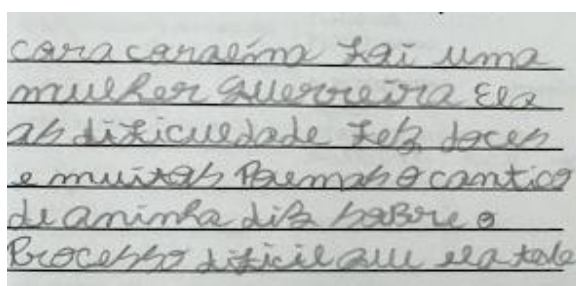 cora coralina foi uma
mulher guerreira Ela
as dificuldade fez doces
e muitos Poemas o cantico
de aninha diz sobre o
Processo dificil que ela teve